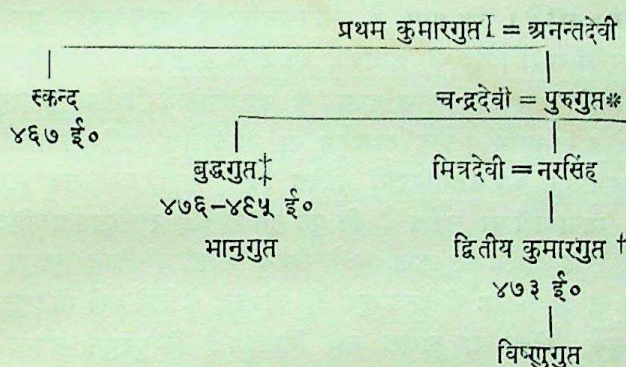 प्रथम कुमारगुप्त I = अनन्तदेवी
स्कन्द
४६७ ई०
चन्द्रदेवी = पुरुगुप्त*
बुद्धगुप्त‡
४७६-४९५ ई०
भानुगुप्त
मित्रदेवी = नरसिंह
द्वितीय कुमारगुप्त †
४७३ ई०
विष्णुगुप्त